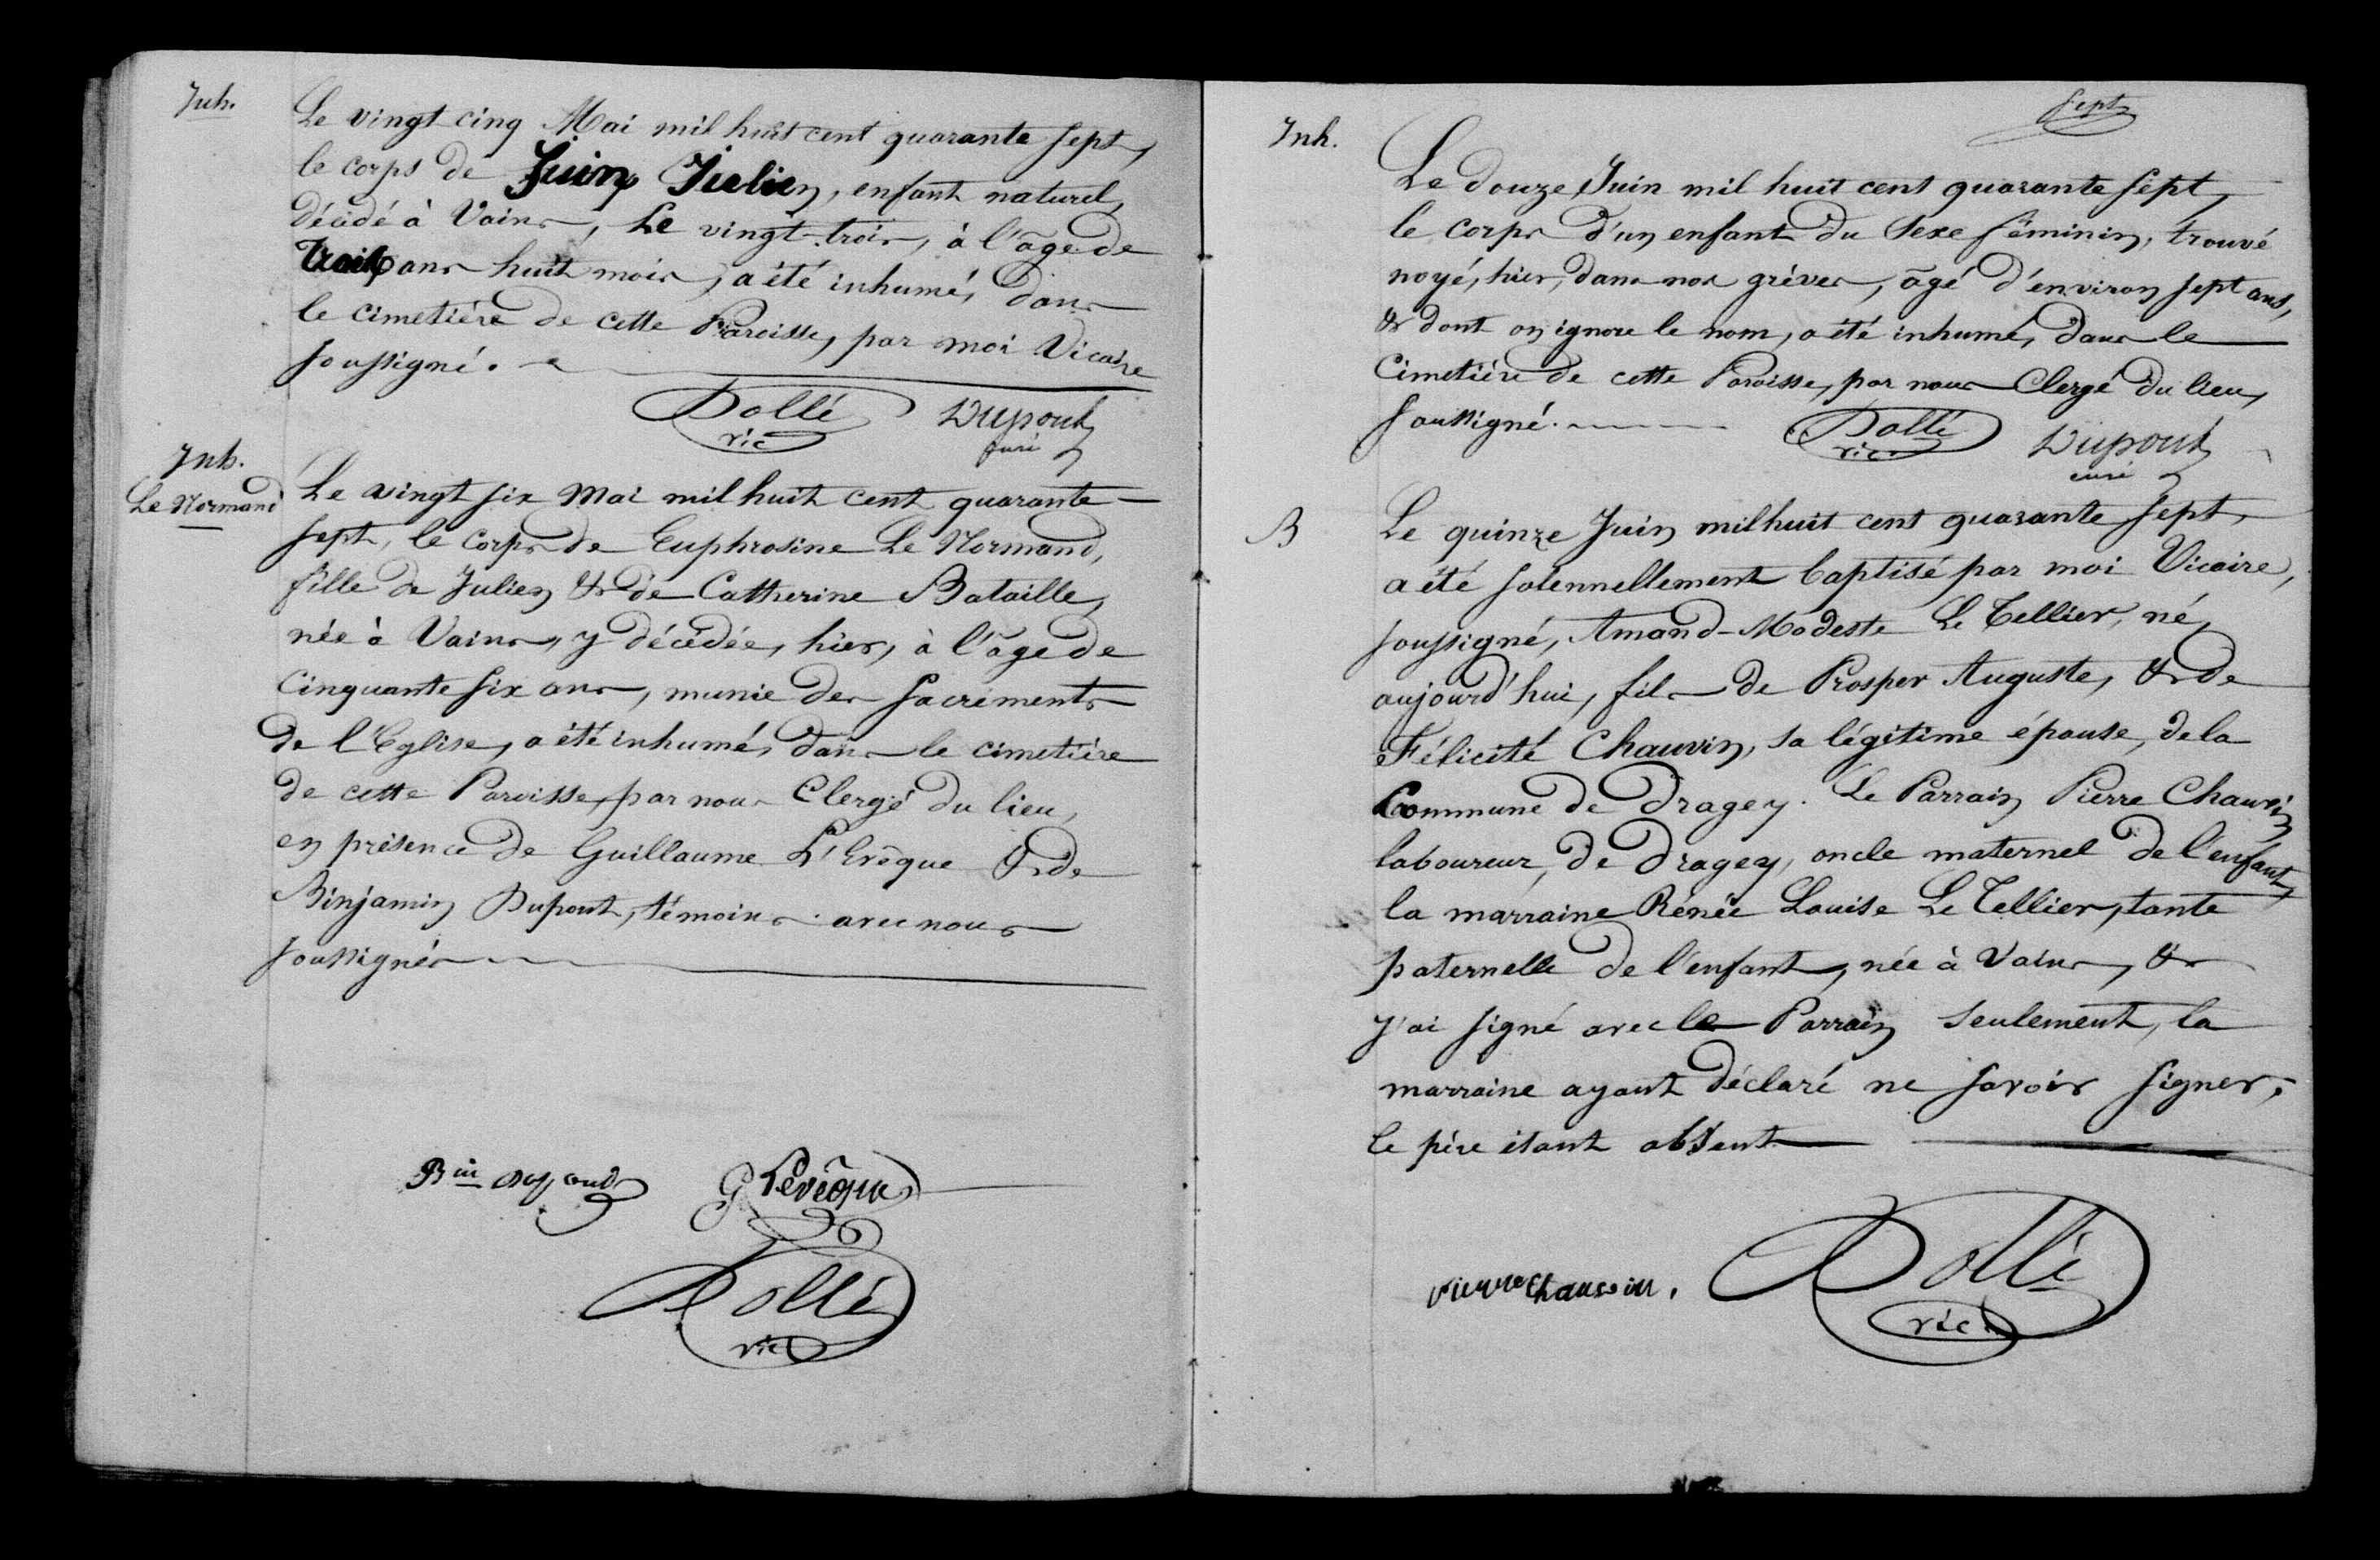 Inh.
Le vingt-cinq Mai mil huit cent quarante sept,
le corps de Juin Julien, enfant naturel,
décédé à Vains, le vingt-trois, à l'âge de
trois ans huit mois, a été inhumé, dans
le cimetière de cette Paroisse, par moi Vicaire
soussigné.
Dollé Dupont
vic curé
Inh.
Le Normand
Le vingt six Mai mil huit cent quarante
sept, le corps de Euphrosine Le Normand,
fille de Julien & de Catherine Bataille,
née à Vains, y décédée, hier, à l'âge de
cinquante six ans, munie des sacrements
de l'Eglise, a été inhumé, dans le cimetière
de cette Paroisse, par nous Clergé du lieu,
en présence de Guillaume L'Evêque & de
Binjamin Dupont, témoins avec nous
soussignés
Bin dupont G Levêque
Dollé
vic
sept
Inh.
Le douze Juin mil huit cent quarante sept,
le corps d'un enfant du sexe féminin, trouvé
noyé, hier, dans nos grèves, âgé d'environ sept ans,
& dont on ignore le nom, a été inhumé, dans le
Cimetière de cette Paroisse, par nous Clergé du lieu,
soussigné.
Dollé Dupont
vic. curé
B
Le quinze Juin mil huit cent quarante sept,
a été solennellement baptisé par moi Vicaire,
soussigné, Amand-Modeste Le Tellier, né,
aujourd'hui, fils de Prosper Auguste, & de
Félicité Chauvin, sa légitime épouse, de la
Commune de Dragey. Le Parrain Pierre Chauvin
laboureur, de Dragey, oncle maternel de l'enfant,
la marraine Rénée Louise Le Tellier, tante
paternelle de l'enfant, née à Vains, &
j'ai signé avec le Parrain seulement, la
marraine ayant déclaré ne savoir signer,
le père étant absent
Pierre Chauvin. Dollé
vic.